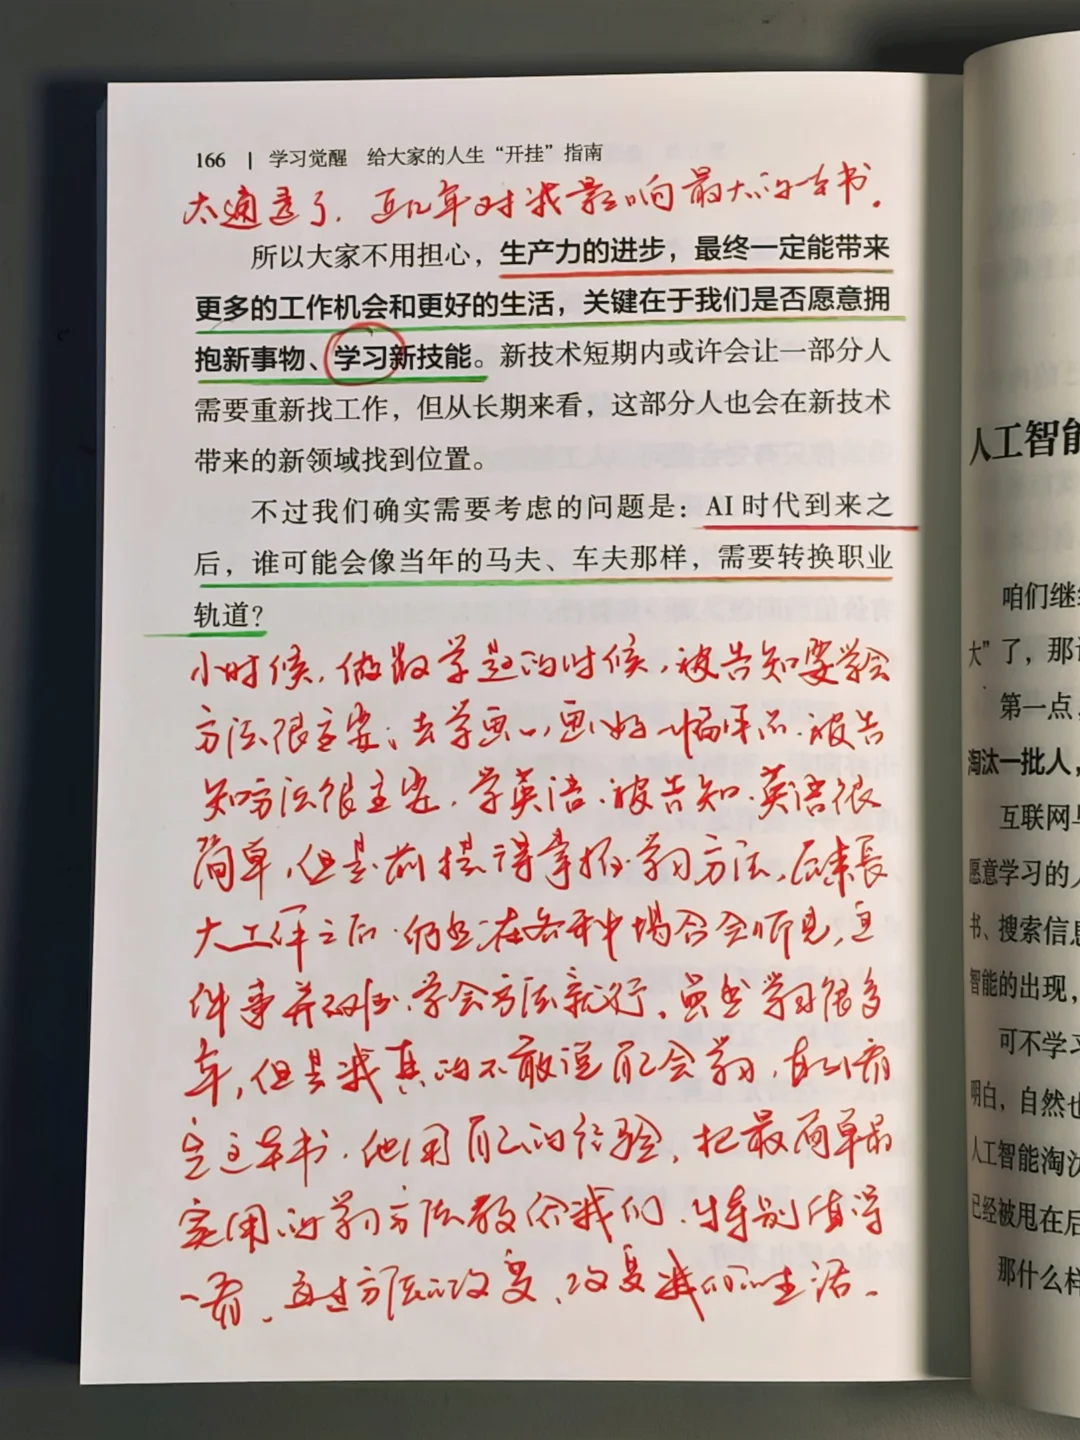 166 | 学习觉醒 给大家的人生“开挂”指南
太通透了，近几年对我影响最大的一本书。
所以大家不用担心，生产力的进步，最终一定能带来
更多的工作机会和更好的生活，关键在于我们是否愿意拥
抱新事物、学习新技能。新技术短期内或许会让一部分人
需要重新找工作，但从长期来看，这部分人也会在新技术
带来的新领域找到位置。
不过我们确实需要考虑的问题是：AI 时代到来之
后，谁可能会像当年的马夫、车夫那样，需要转换职业
轨道？
小时候，做数学题的时候，被告知要学会
方法很重要；去学画画，画好一幅作品，被告
知方法很重要，学英语，被告知，英语很
简单，但是前提得掌握学习方法，后来长
大工作之后，仍然在各种场合会听见，这
件事并不难，学会方法就行。虽然学习很多
年，但是我真的不敢说自己会学习，直到看
完这本书，他用自己的经验，把最简单最
实用的学习方法教给我们，特别值得
一看，通过方法的改变，改变我们的生活。
人工智能
咱们继续
大”了，那
第一点，
淘汰一批人，
互联网
愿意学习的人
书、搜索信息
智能的出现，
可不学习
明白，自然也
人工智能淘汰
已经被甩在后
那什么样